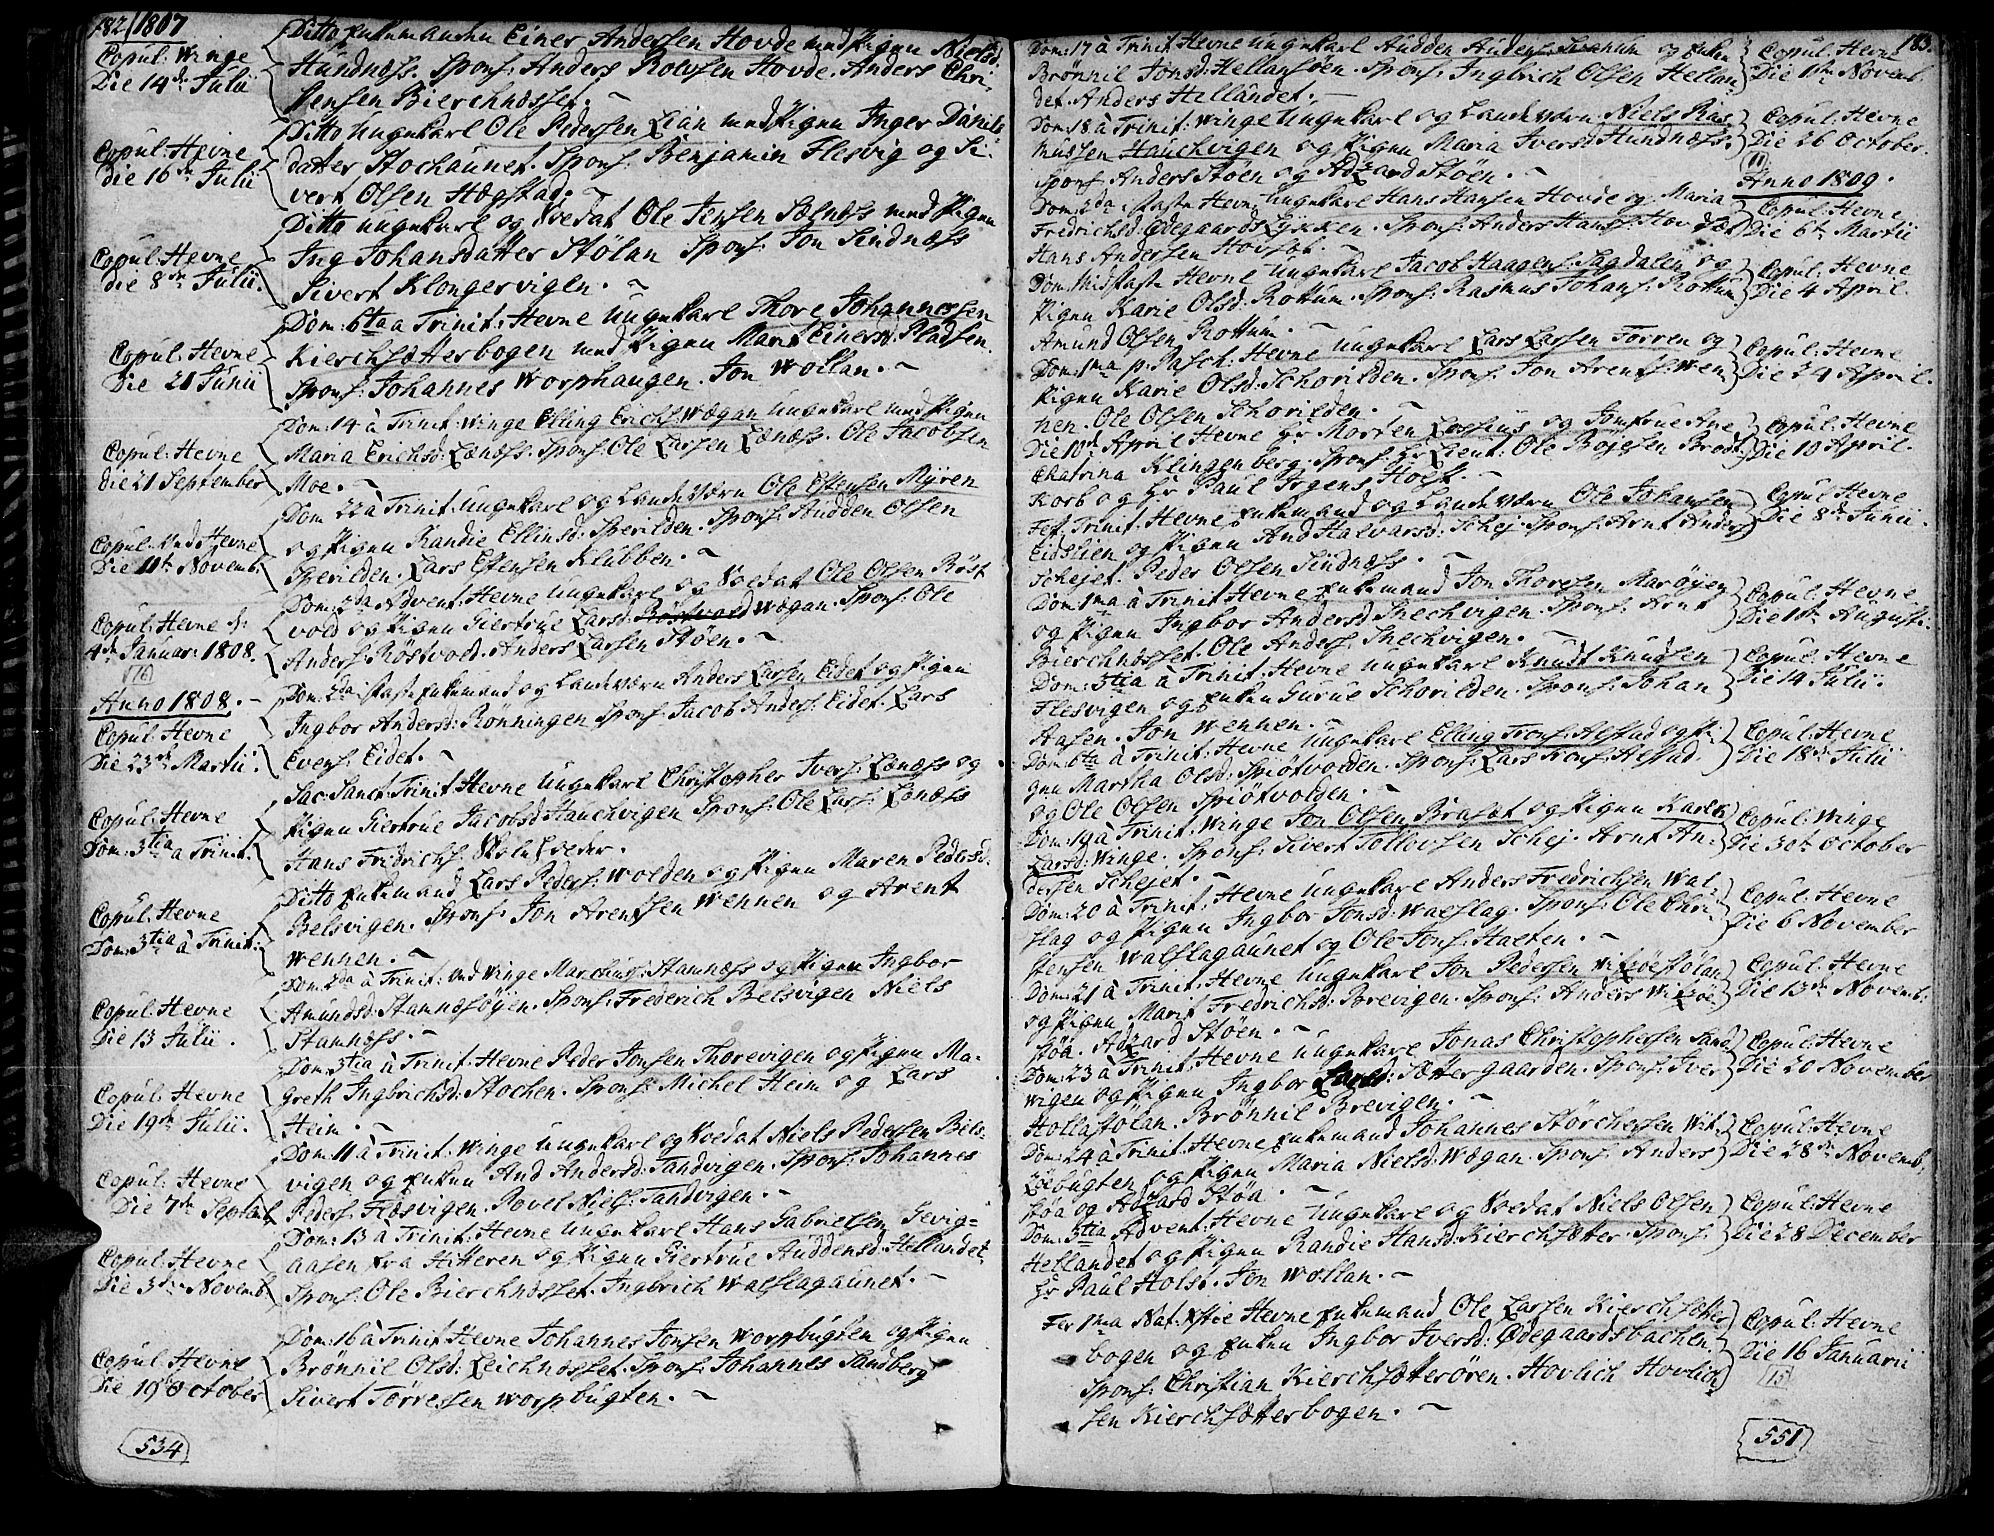 182/1807
Copul: Winge
Die 14de Julii
Ditto Enkemanden Einer Andersen Hovde med Pigen Nielsd:
Hundnæss. Spons: Anders Rolvsen Hovde. Anders Chri-
stensen Bierchnæsset. ~
Copul: Hevne
die 16de Julii
Ditto Ungekarl Ole Pedersen Lian med Pigen Inger Daniels
datter Stochaunet. Spons: Benjamin Flesvig og Si-
vert Olsen Hægstad. ~
Copul: Hevne
die 8de Julii.
Ditto Ungekarl og Soldat Ole Jensen Sælnæss med Pigen
Ing Johansdatter Stølan Spons: Jon Lindnæss
Sivert Klongervigen. ~
Copul: Hevne
Die 21 Junii
Dom: 6ta a Trinit: Hevne Ungekarl Thore Johannessen
Kierchsætterbogen med Pigen Marit Einersd: Pladsen.
Spons: Johannes Worphaugen. Jon Wollan. ~
Copul: Hevne
die 21 September
Dom: 14 à Trinit: Winge Elling Erichs: Wægan Ungekarl med Pigen
Maria Erichsd: Lænæss. Spons: Ole Larsen Lænæss. Ole Jacobsen
Moe. ~
Copul: Hevne
Die 11te Novemb:
Dom 22 à Trinit: Ungekarl og Landeværn Ole Estensen Myren
og Pigen Randie Ellingsd: Sperilden. Spons: Audden Olsen
Sperilden. Lars Estensen Klubben. ~
Copul: Hevne d:
4de Januar: 1808.
Dom: 2da Advent: Hevne Ungekarl og Soldat Ole Olsen Røst
vold og Pigen Giertrue Larsd: Røstvold Wægan. Spons: Ole
Anders: Røstvold. Anders Larsen Støen. ~
Anno 1808. -
Copul: Hevne
Die 23de Martii.
Dom: 2da i faste Enkemand og Landeværn Anders Larsen Eidet og Pigen
Ingbor Andersd: Rønningen Spons: Jacob Anders: Eidet. Lars
Evens: Eidet. ~
Copul: Hevne
Dom: 3tia a Trinit:
Sac: Sanct: Trinit: Hevne Ungekarl Christopher Ivers: Lænæss og
Pigen Giertrue Jacobsd: Hauchvigen Spons: Ole Lars: Lænæss
Hans Fridrichs: Skoleholder.
Copul: Hevne
Dom: 3tia à Trinit:
Ditto Enkemand Lars Peders: Wolden og Pigen Maren Pedersd:
Belsvigen. Spons: Jon Arentsen Wennen og Arent
Wennen. ~
Copul: Hevne
Die 13 Julii.
Dom: 2da à Trinit: ved Winge Marchus: Stamnæss og Pigen Ingbor
Amundsd: Stamnæsøyen. Spons: Frederich Belsvigen Niels
Stamnæss. ~
Copul: Hevne
Die 19de Julii.
Dom: 3tia à Trinit: Hevne Peder Jonsen Thorevigen og Pigen Ma-
greth Ingbrichsd: Stochen. Spons: Michel Heim og Lars
Heim. ~
Copul: Hevne
Die 7de Septemb
Dom: 11 à Trinit: Winge Ungekarl og Soldat Niels Pedersen Bels-
vigen og Enken And Andersd: Tandvigen. Spons: Johannes
Peders: Flæsvigen. Povel Niels: Tandvigen. ~
Copul: Hevne
Die 3die Novemb:
Dom: 13 à Trinit: Hevne Ungekarl Hans Gabrielsen Gevig-
aasen fra Hitteren og Pigen Giertrue Auddensd: Hellandet
Spons: Ole Bierchnæsset. Ingbrich Walslagaunet. ~
Copul: Hevne
Die 19 October
Dom: 16 à Trinit: Hevne Johannes Jonsen Worpbugten og Pigen
Brønnil Olsd: Leichnæsset. Spons: Johannes Sandberg
Sivert Tørresen Worpbugten. ~
534
183.
Dom: 17 à Trinit: Hevne Ungekarl Audden Audens: og Enken
Brønnil Jonsd: Hellansøen. Spons: Ingbrich Olsen Hellan-
det. Anders Hellandet. ~
Copul: Hevne
Die 11te Novemb.
Dom: 18 à Trinit: Winge Ungekarl og Landeværn Niels Ras
mussen Hauchvigen og Pigen Maria Iversd: Hundnæss.
Spons: Anders Støen og Adzard Støen. ~
Copul: Hevne
Die 26 October.
11
Anno 1809.
Dom: 2da i faste Hevne Ungekarl Hans Hansen Hovde og Maria
Fridrichsd: Ødegaards Lykken. Spons: Anders Hans: Hov
Hans Andersen Hovset ~
Copul: Hevne
Die 6te Martii
Dom: Midfaste Hevne Ungekarl Jacob Haagens: Sagdalen og
Pigen Karie Olsd: Rottum. Spons: Rasmus Johans: Rottum
Amund Olsen Rottum. ~
Copul: Hevne
Die 4 April.
Dom: 1ma p. Pasch: Hevne Ungekarl Lars Larsen Torren og
Pigen Karie Olsd: Schorilden. Spons: Jon Arents: Wen
nen. Ole Olsen Schorilden. ~
Copul: Hevne
Die 24 April.
Die 10de April Hevne Hr Morten Lossius og Jomfrue Ane
Chatrina Klingenberg. Spons: Hr Lieut: Ole Bojesen Brodt
Korb og Hr Paul Irgens Holst. ~
Copul: Hevne
Die 10 April.
Fest: Trinit: Hevne Enkemand og Landeværn Ole Johansen
Eidslien og Pigen And Halvarsd: Schej. Spons: Arnt Anders:
Schejet. Peder Olsen Lindnæss. ~
Copul: Hevne
Die 8de Junii.
Dom: 1ma à Trinit: Hevne Enkemand Jon Thoresen Marøyen
og Pigen Ingbor Andersd: Snechvigen. Spons: Arnt
Bierchnæsset. Ole Anders: Snechvigen. ~
Copul: Hevne
Die 1ste Augusti.
Dom: 3tia à Trinit: Hevne Ungekarl Knudt Knudsen
Flesvigen og Enken Gurue Schorilden. Spons: Johan
Aasen. Jon Wennen. ~
Copul: Hevne
Die 14 Julii.
Dom: 6ta à Trinit: Hevne Ungekarl Elling Trons: Alstad og Pi-
gen Martha Olsd: Spiøtvolden. Spons: Lars Trons: Alstad.
og Ole Olsen Spiøtvolden. ~
Copul: Hevne
Die 18de Julii
Dom: 19 à Trinit: Winge Jon Olsen Brasæt og Pigen Karen
Larsd: Winge. Spons: Sivert Tollevsen Schej. Arnt An-
dersen Schejet. ~
Copul: Winge
Die 30te October
Dom: 20 à Trinit: Hevne Ungekarl Anders Fredrichsen Wal-
slag og Pigen Ingbor Jonsd: Walslag. Spons: Ole Chri-
stensen Walslagaunet og Ole Jons: Halten. ~
Copul: Hevne
Die 6 November
Dom: 21 à Trinit: Hevne Ungekarl Jon Pedersen Witzøestølan
og Pigen Marit Fredrichsd: Brevigen. Spons: Anders Witzøe
støa. Adzard Støen. ~
Copul: Hevne
Die 13de Novemb:
Dom: 23 à Trinit: Hevne Ungekarl Jonas Christophersen Sand
wigen og Pigen Ingbor Larsd: Sættergaarden. Spons: Iver
Hollastølan. Brønnil Brevigen. ~
Copul: Hevne
Die 20 November
Dom: 24 à Trinit: Hevne Enkemand Johannes Størchersen Wit-
zøebugten og Pigen Maria Nielsd: Wægan. Spons: Anders
støa og Adzard Støa. ~
Copul: Hevne
Die 28de Novemb.
Dom: 3tia Advent: Hevne Ungekarl og Soldat Niels Olsen
Hellandet og Pigen Randie Hansd: Kierchsætter. Spons:
Hr Paul Holst. Jon Wollan. ~
Copul: Hevne
Die 28 December
Fer 1ma Nat: Xstie Hevne Enkemand Ole Larsen Kierchsætter
bogen og Enken Ingbor Iversd: Ødegaardsbachen.
Spons: Christian Kierchsæterøren. Hovlich Hovlich
sen Kierchsætterbogen. ~
Copul: Hevne
Die 16 Januarii
15
551